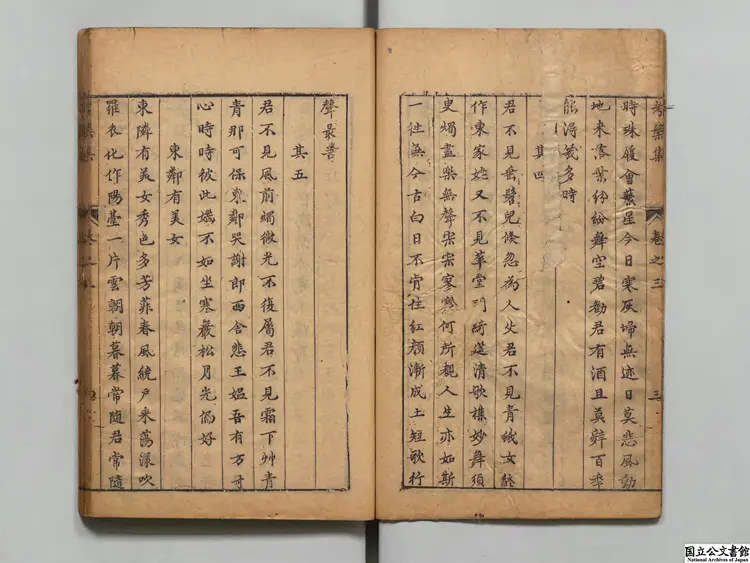 時珠履會蓁星今日寒灰掃無迹日莫悲風動
地来落葉紛紛舞空碧勸君有酒且莫辭百年
能得幾多時
其四
君不見垂髫兒倐忽為人父君不見青蛾女終
作東家姥又不見華堂列綺筵清歌雜妙舞須
臾燭盡樂無聲寀寀寥寥何所親人生亦如斯
一往無今古白日不肯住紅顔漸成土短歌行
聲最
其五
君不見風前燭微光不復屬君不見霜下艸青
青那可保東鄰哭謝郎西舍悲王媪吾有方寸
心時時被此媯不如坐寒巖松月光偏好
東鄰有美女
東隣有美女秀色多芳菲春風繞戶来蕩漾吹
羅衣化作陽臺一片雲朝朝暮暮常隨君常隨
卷之三
三
国立公文書館
National Archives of Japan